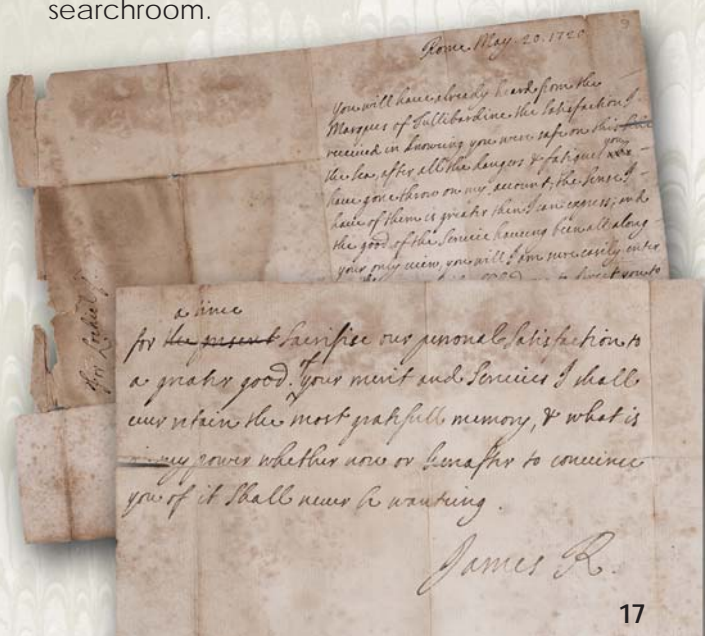 searchroom.
Rome May. 20. 1720
You will have already heard from the
Marques of Tullibardine the Satisfaction I
received in knowing you were safe on this side
the sea, after all the dangers & fatigues you
have gone throw on my account, the sense I
have of them is greater then I can express, and
the good of the Service having been all along
your only view, you will I am sure easily enter
to direct you to
For Locheil
a time
for the present Sacrifise our personal Satisfaction to
a greater good. of your merit and Services I shall
ever retain the most gratefull memory, & what is
in my power whether now or hereafter to convince
you of it Shall never be wanting.
James R.
17